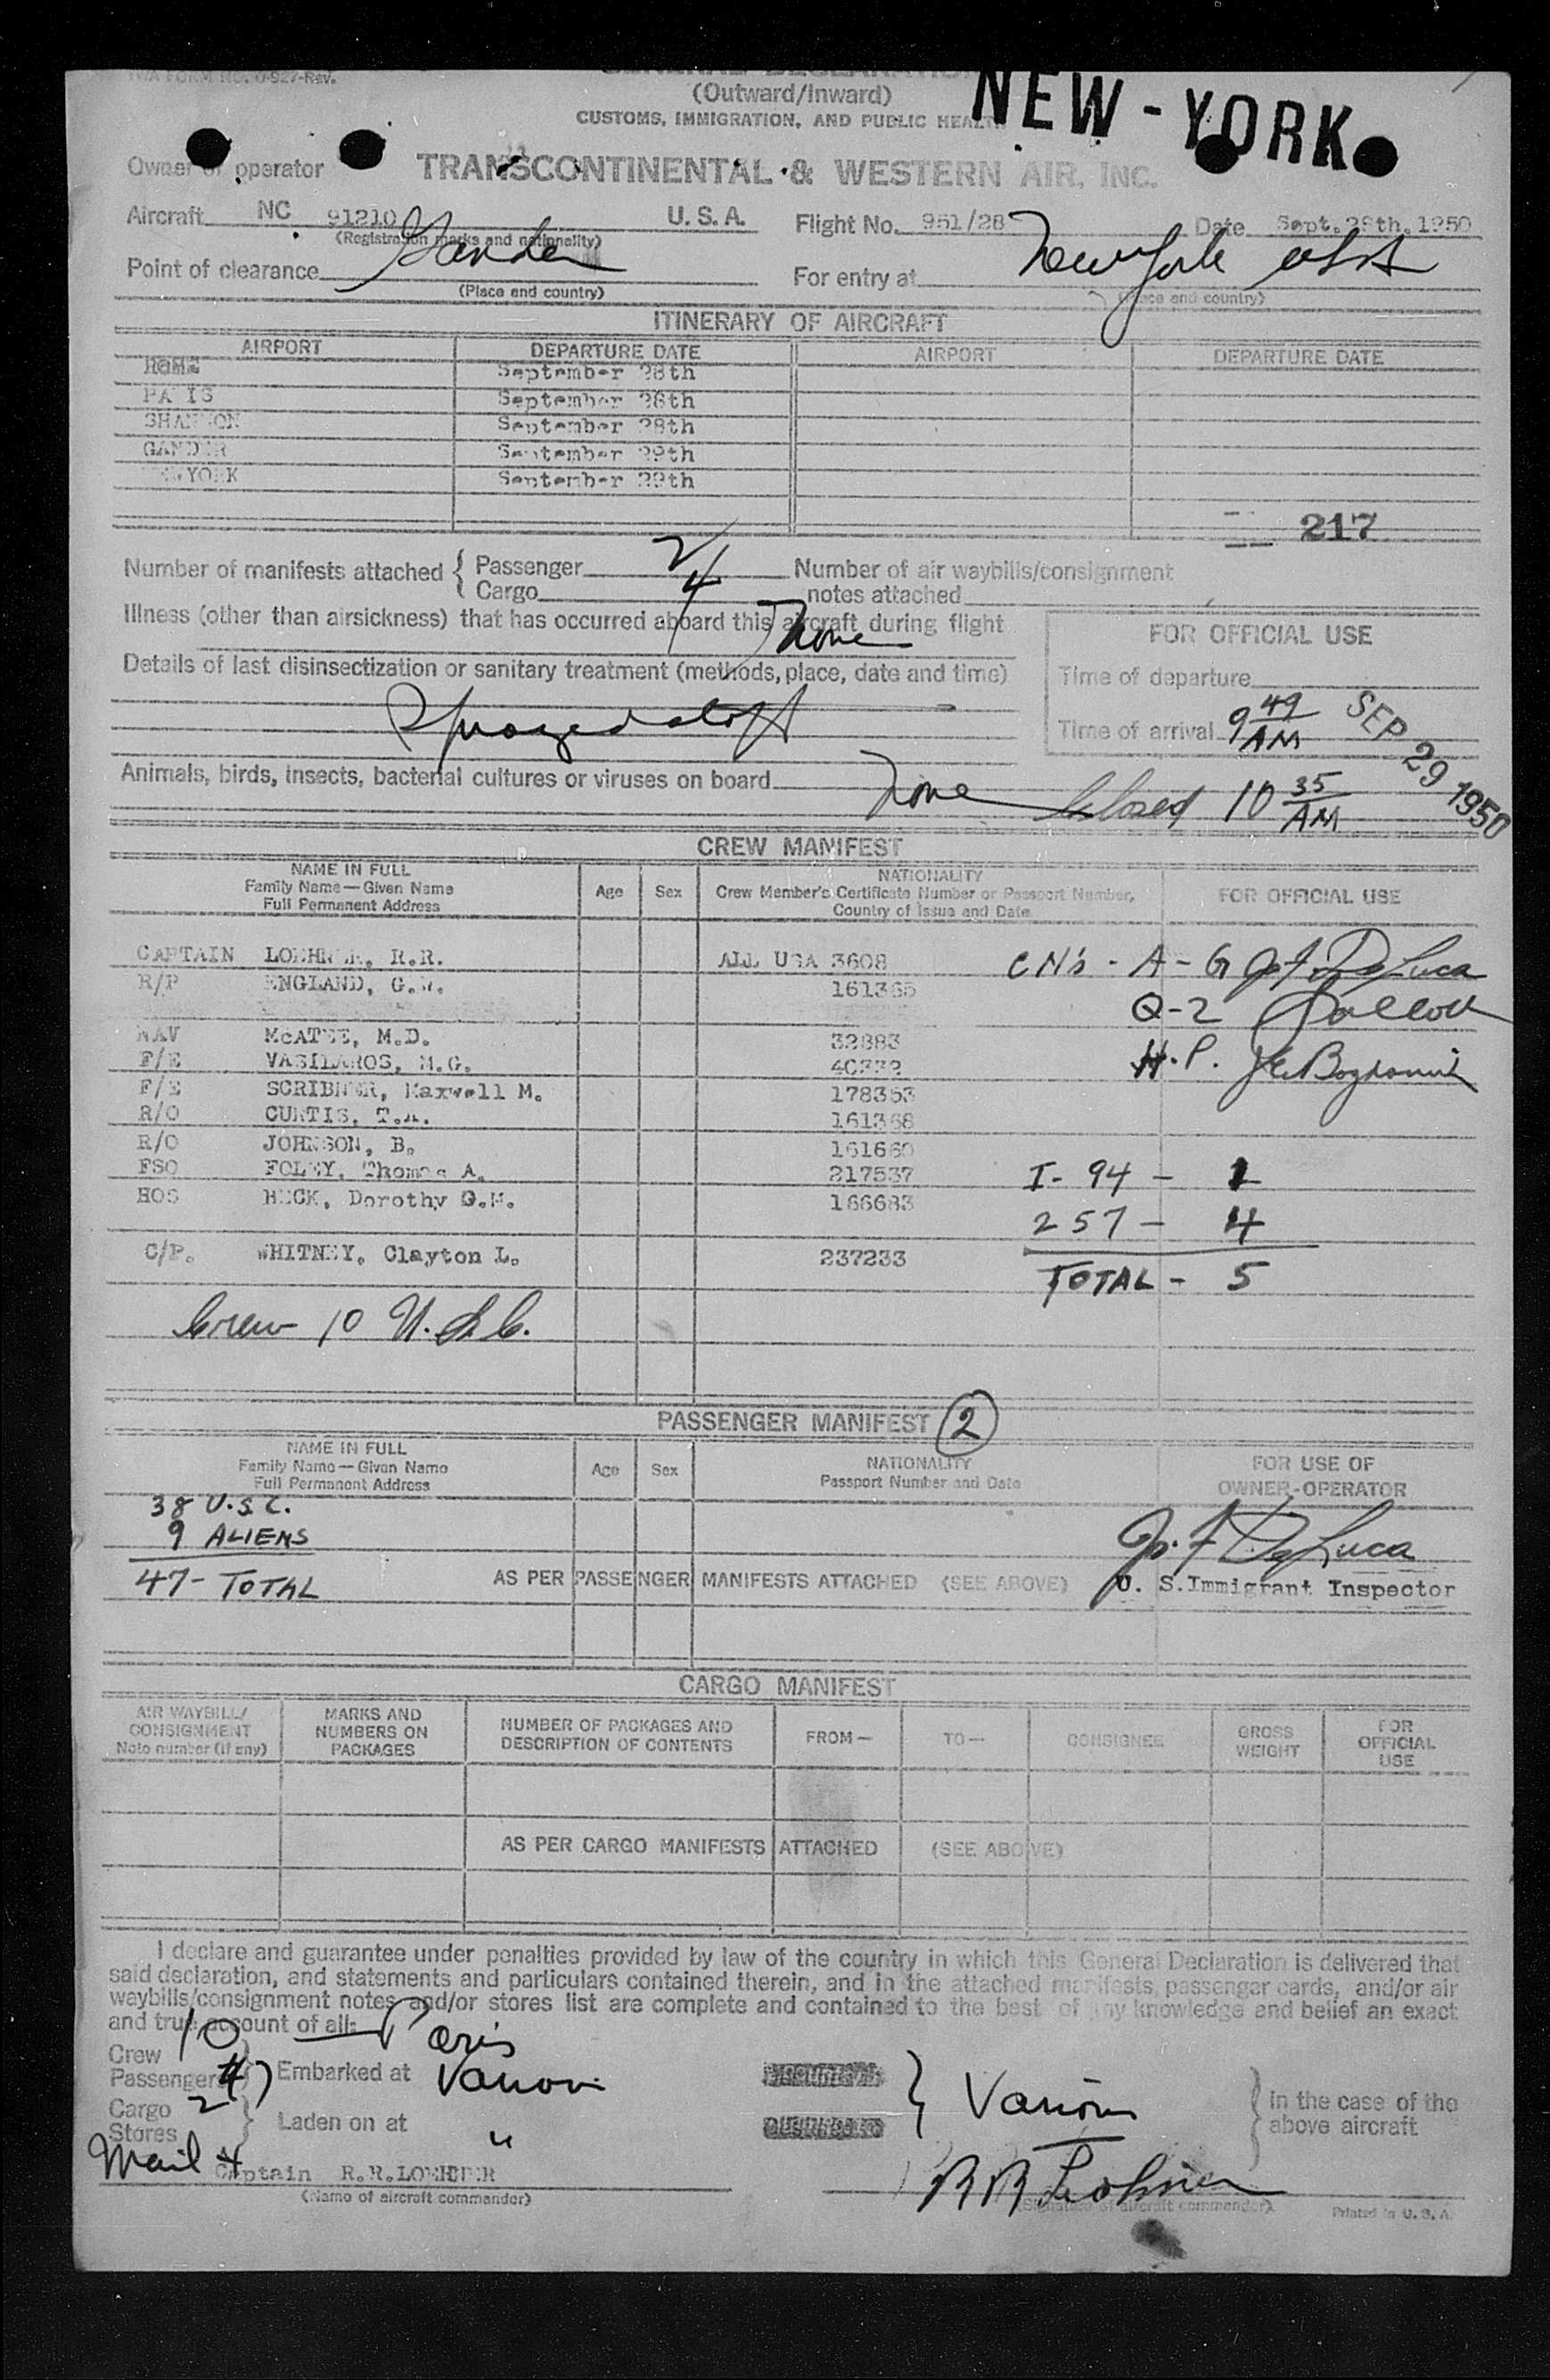 TWA FORM NO. 0-927-Rev.
GENERAL DECLARATION
(Outward/Inward)
CUSTOMS, IMMIGRATION, AND PUBLIC HEALTH
NEW-YORK
Owner or operator TRANSCONTINENTAL & WESTERN AIR, INC.
Aircraft NC 91210 U.S.A. Flight No. 951/28 Date Sept. 28th. 1950
(Registration marks and nationality)
Point of clearance Gander For entry at New York USA
(Place and country) (Place and country)
ITINERARY OF AIRCRAFT
AIRPORT DEPARTURE DATE AIRPORT DEPARTURE DATE
ROME September 28th
PA IS September 28th
SHANNON September 28th
GANDER September 29th
NEWYORK September 29th
217
Number of manifests attached { Passenger 2 Number of air waybills/consignment
Cargo 4 notes attached
Illness (other than airsickness) that has occurred aboard this aircraft during flight None
FOR OFFICIAL USE
Details of last disinsectization or sanitary treatment (methods, place, date and time)
Time of departure
Sprayed aloft
Time of arrival 9 49 AM SEP 29 1950
Animals, birds, insects, bacterial cultures or viruses on board None
Closed 10 35 AM
CREW MANIFEST
NAME IN FULL
Family Name—Given Name
Full Permanent Address
Age Sex
NATIONALITY
Crew Member's Certificate Number or Passport Number,
Country of Issue and Date
FOR OFFICIAL USE
CAPTAIN LOEHNER, R.R. ALL USA 3608 CN's - A - G Jos. F. DeLuca
R/P ENGLAND, G.W. 161365
Q-2
NAV McATEE, M.D. 32883
H.P.
F/E VASILAROS, M.G. 40332
F/E SCRIBNER, Maxwell M. 178353
R/O CURTIS, T.A. 161368
R/O JOHNSON, B. 161660
FSO FOLEY, Thomas A. 217537 I-94 - 1
HOS BECK, Dorothy G.M. 166683
257 - 4
C/P. WHITNEY, Clayton L. 237233
TOTAL - 5
Crew 10 U.S.C.
PASSENGER MANIFEST 2
NAME IN FULL
Family Name—Given Name
Full Permanent Address
Age Sex
NATIONALITY
Passport Number and Date
FOR USE OF
OWNER-OPERATOR
38 U.S.C.
9 ALIENS
Jos. F. DeLuca
47 - TOTAL AS PER PASSENGER MANIFESTS ATTACHED (SEE ABOVE) U. S. Immigrant Inspector
CARGO MANIFEST
AIR WAYBILL/
CONSIGNMENT
Note number (if any)
MARKS AND
NUMBERS ON
PACKAGES
NUMBER OF PACKAGES AND
DESCRIPTION OF CONTENTS
FROM— TO— CONSIGNEE
GROSS
WEIGHT
FOR
OFFICIAL
USE
AS PER CARGO MANIFESTS ATTACHED (SEE ABOVE)
I declare and guarantee under penalties provided by law of the country in which this General Declaration is delivered that
said declaration, and statements and particulars contained therein, and in the attached manifests, passenger cards, and/or air
waybills/consignment notes and/or stores list are complete and contained to the best of my knowledge and belief an exact
and true account of all:
Crew 10 Paris
Passengers 47 } Embarked at Various } Various { in the case of the
above aircraft
Cargo 2
Stores } Laden on at "
Mail 4
Captain R.R.LOEHNER R R Loehner
(Name of aircraft commander) (Signature of aircraft commander) Printed in U.S.A.